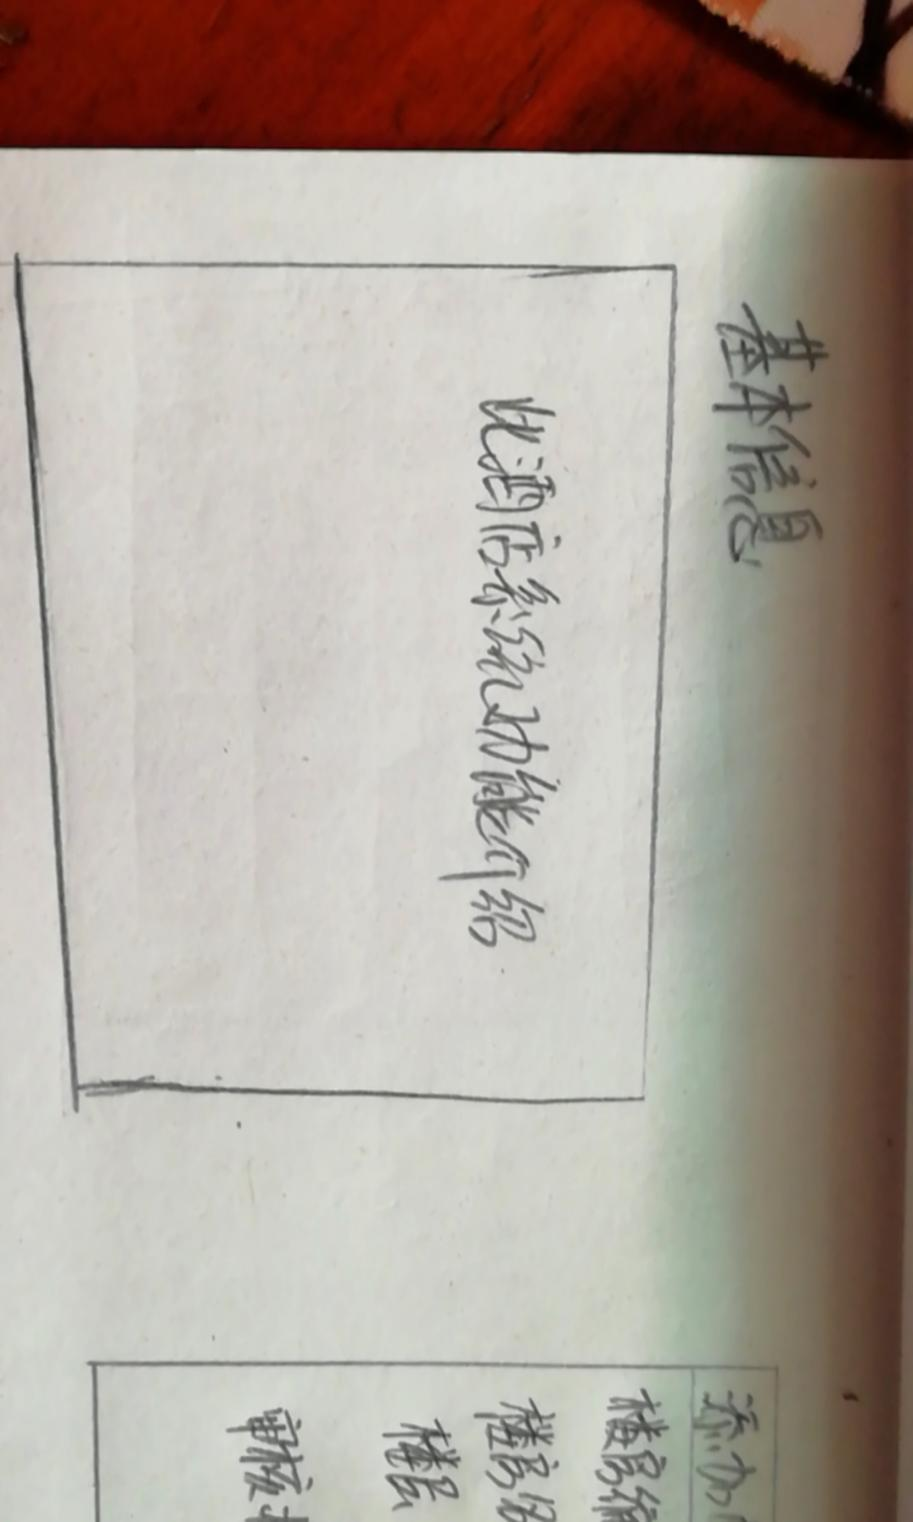 基本信息
此酒店系统功能介绍
添加
楼房编
楼房名
楼层
审核